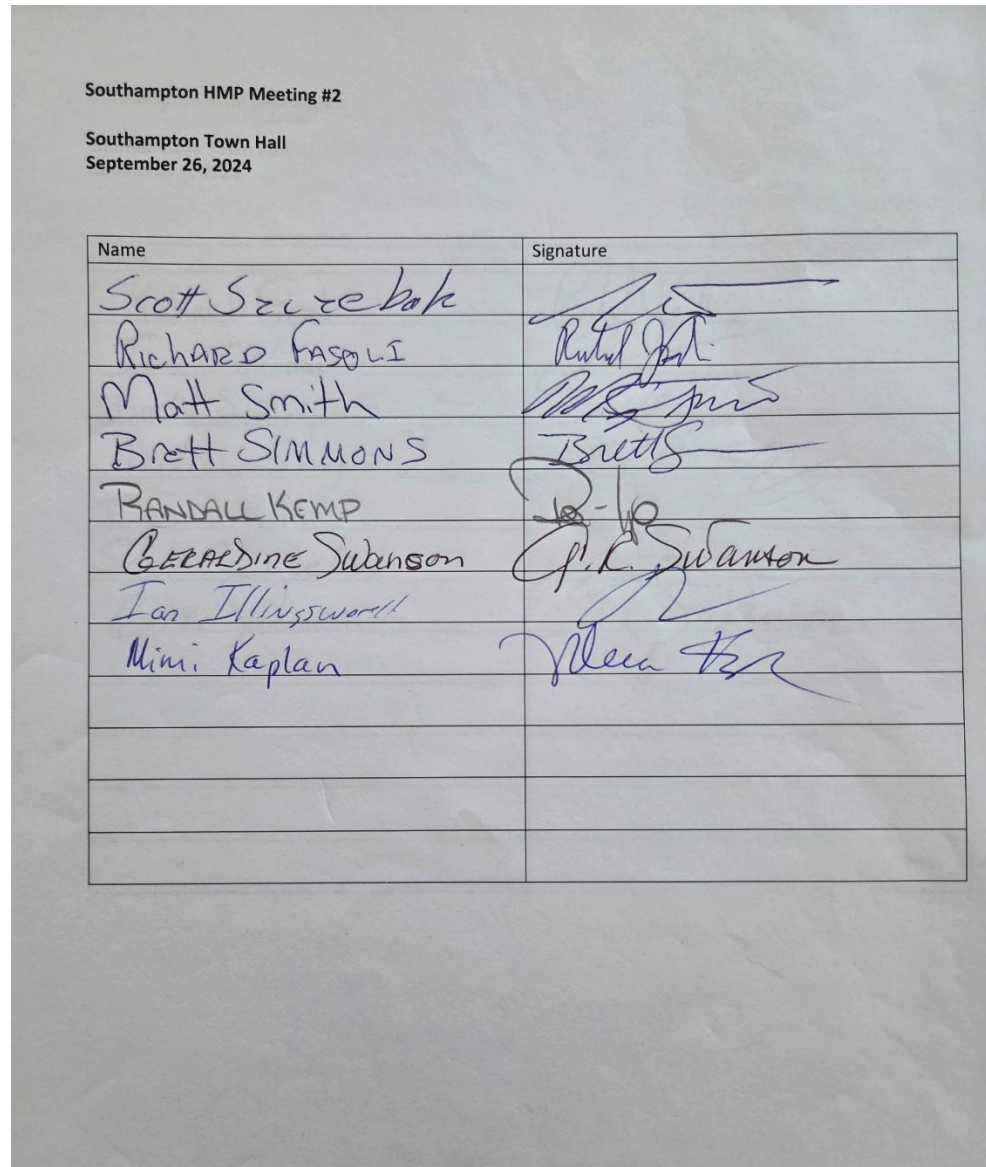 Southampton HMP Meeting #2
Southampton Town Hall
September 26, 2024
Name Signature
Scott Szczebak
Richard Fasoli
Matt Smith
Brett Simmons Brett S
Randall Kemp
Geraldine Swanson G.R. Swanson
Ian Illingsworth
Mimi Kaplan